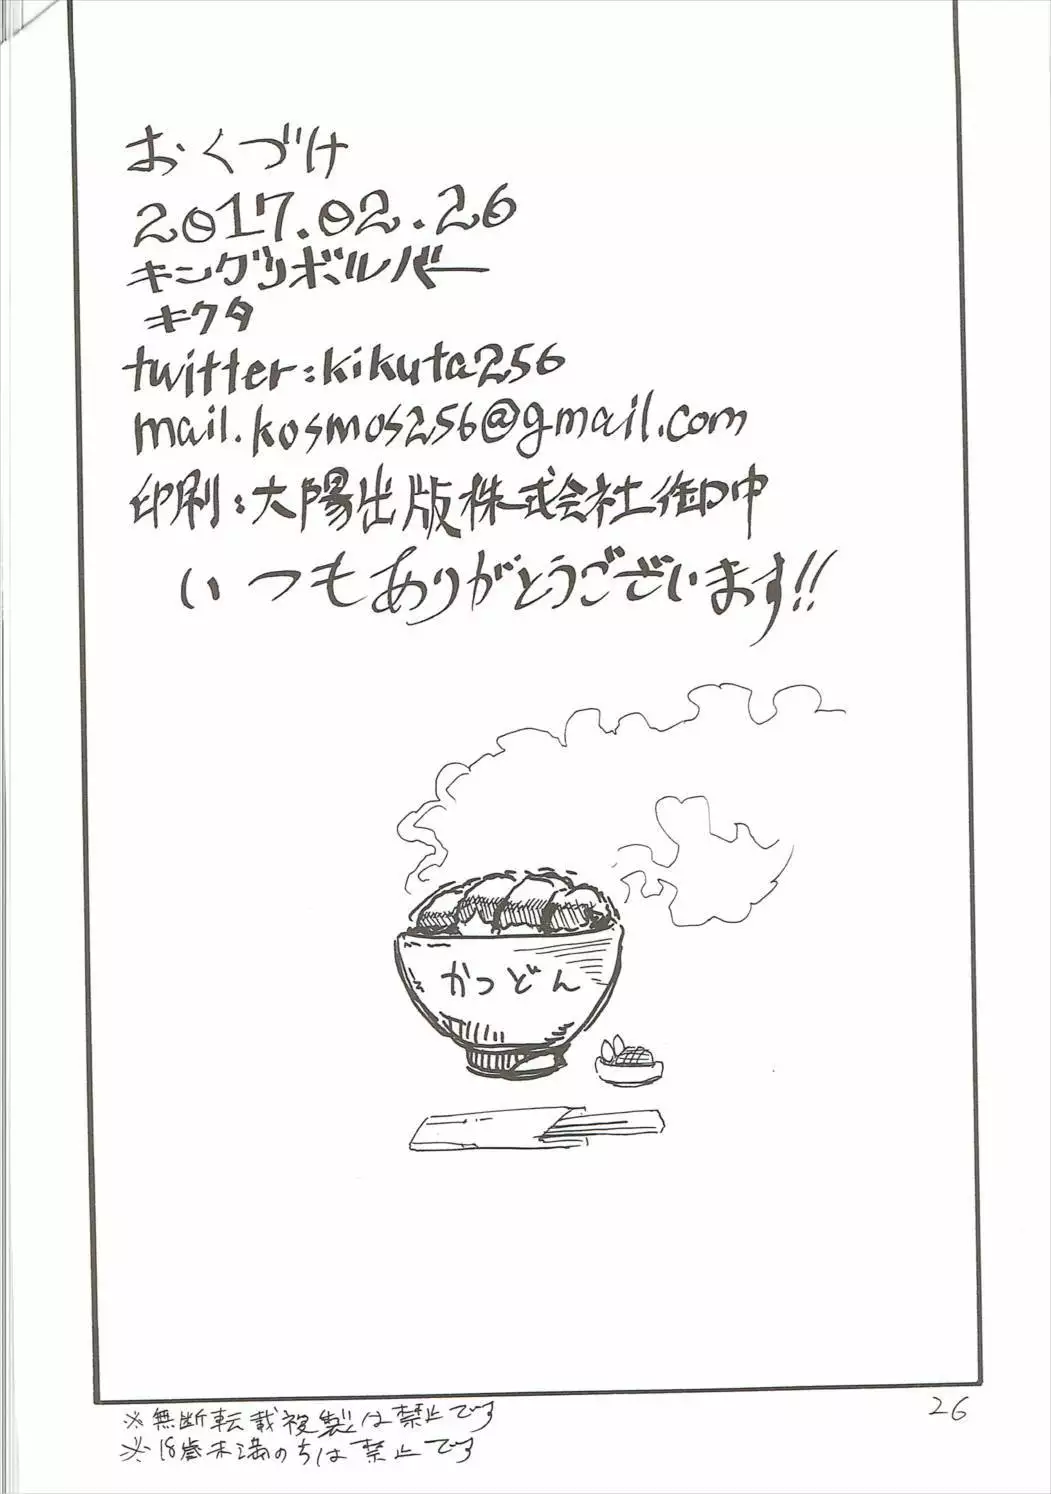 おくづけ
2017.02.26
キングリボルバー
キクタ
twitter:kikuta256
mail.kosmos256@gmail.com
印刷:大陽出版株式会社御中
いつもありがとうございます!!
かつどん
※無断転載複製は禁止です
※18歳未満のちは禁止です
26